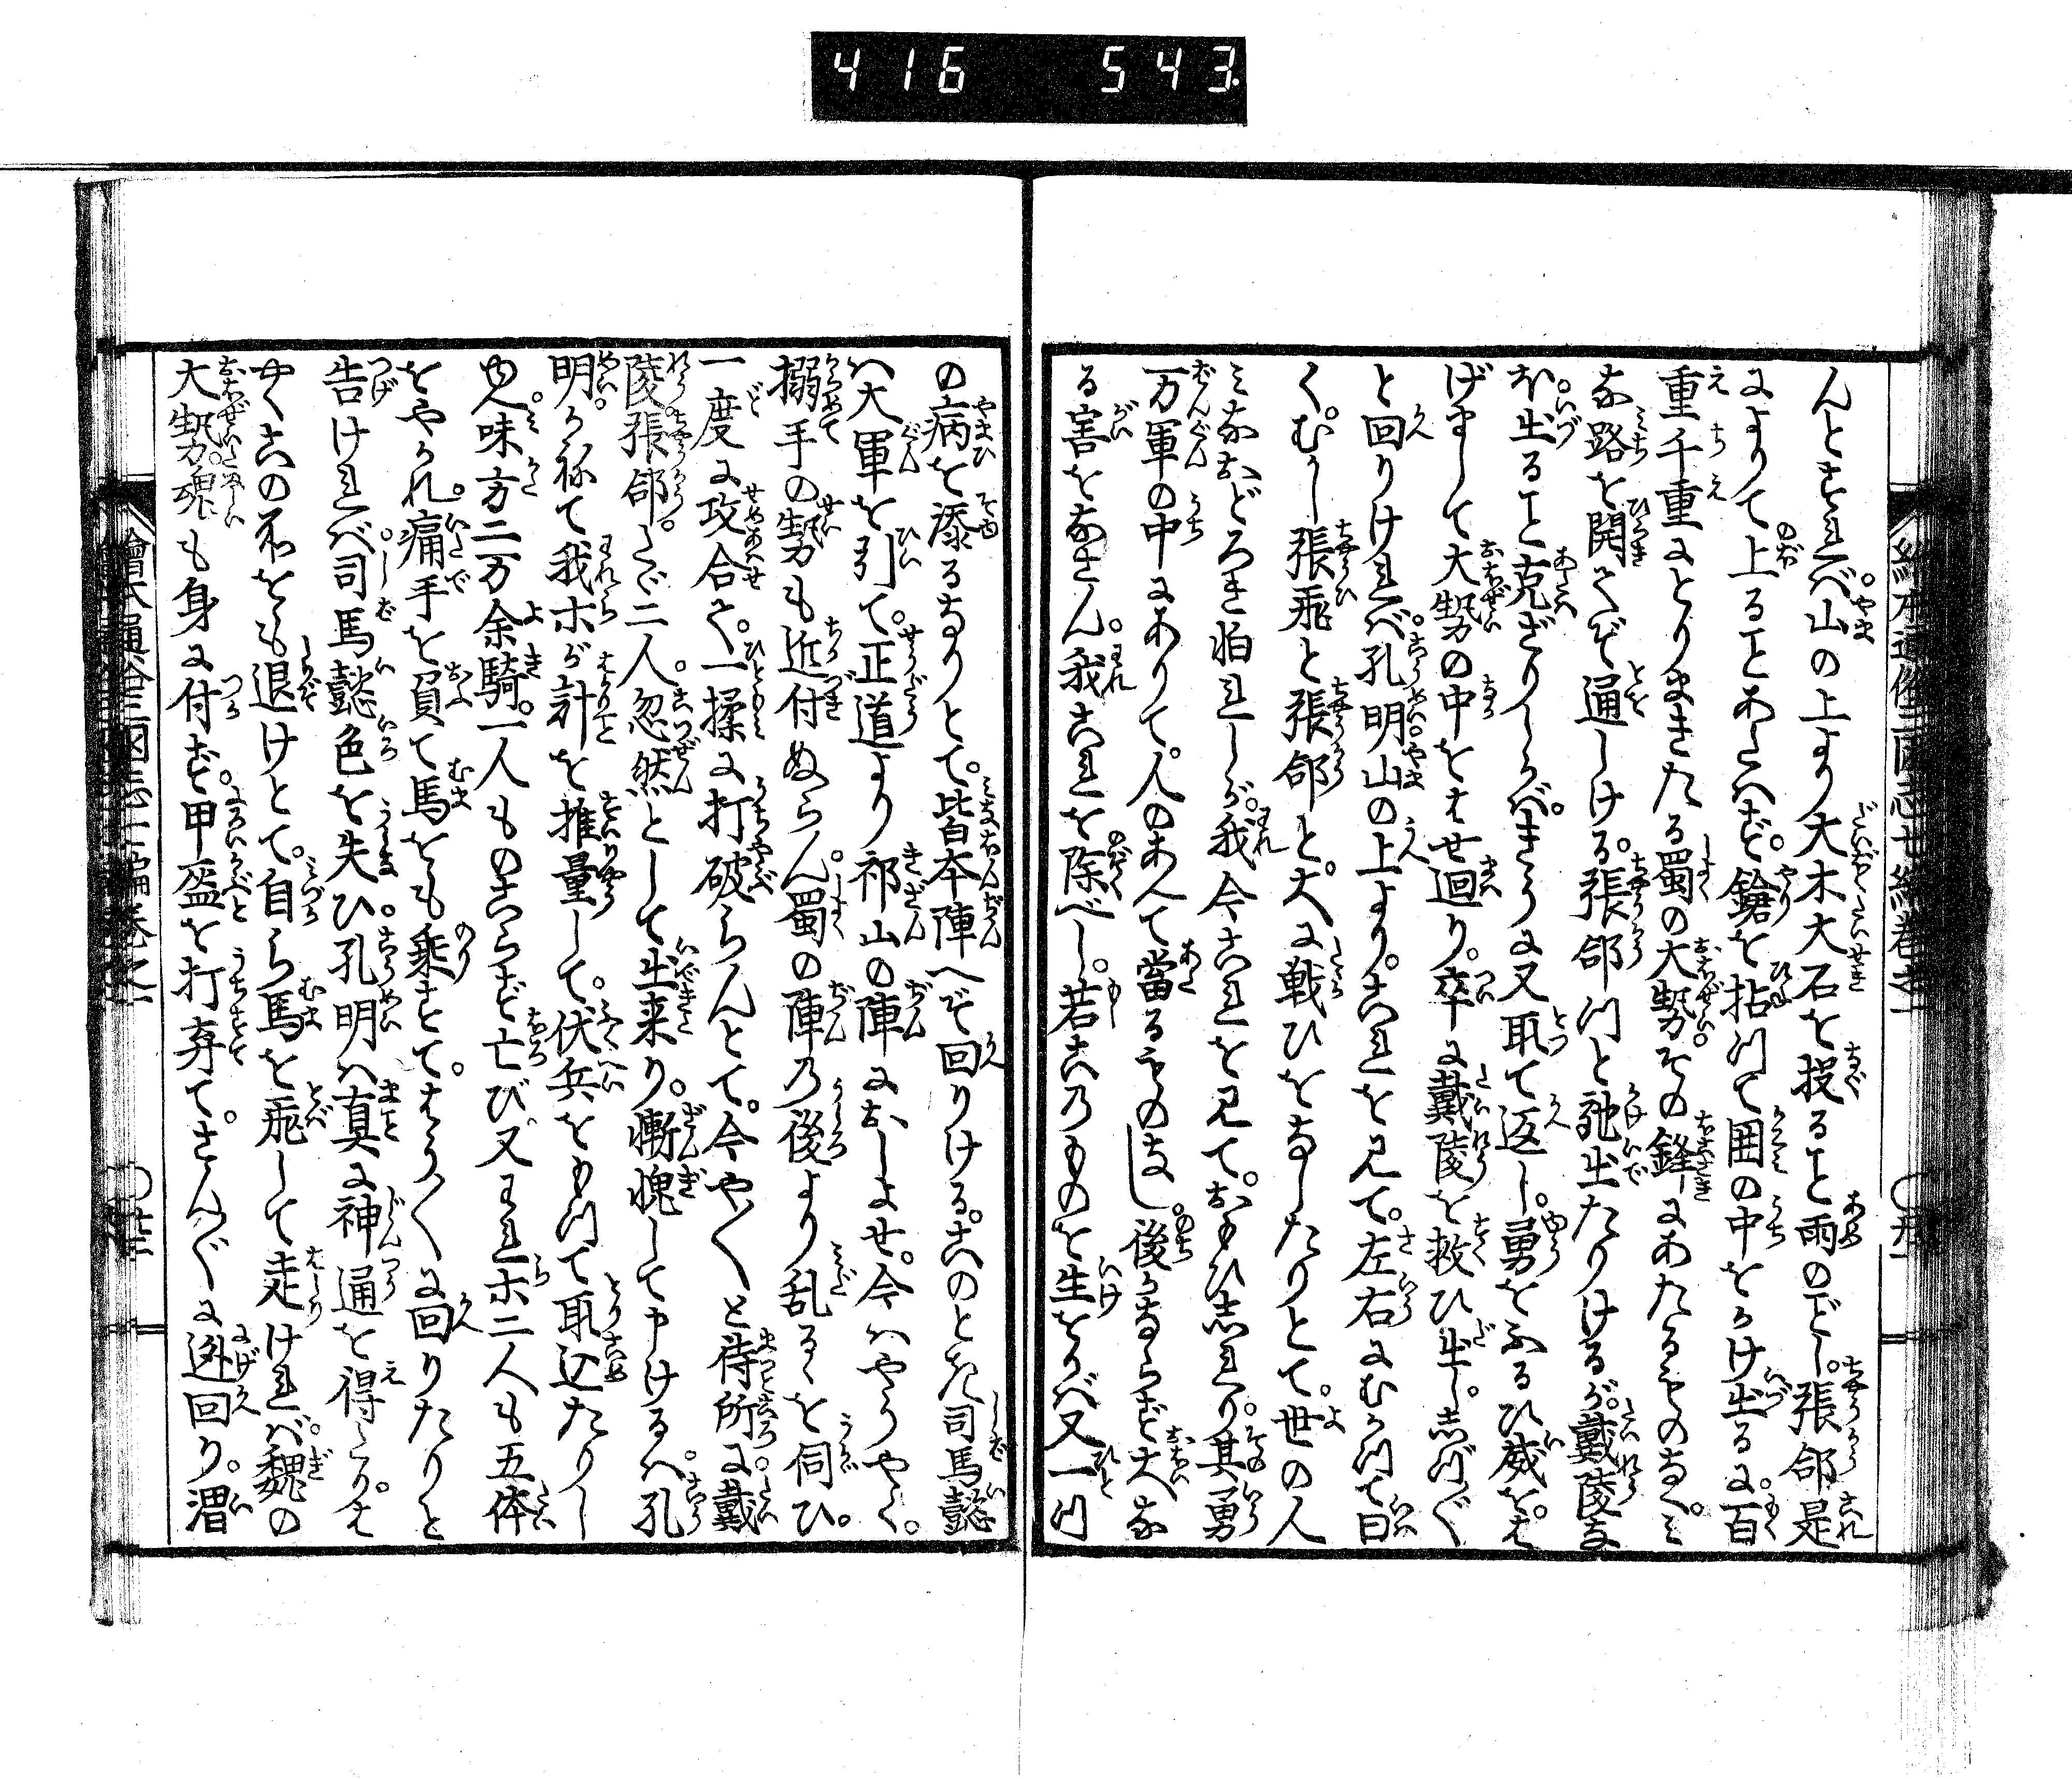 416 543
んとすれバ。山の上より大木大石を投ること雨のごとし。張郃是
によりて上ることあたハず。鎗を拈つて囲の中をかけ出るに。百
重千重にとりまきたる蜀の大勢。その鋒にあたるものなく。ミ
な路を開きて通しける。張郃つと馳出たりけるが。戴陵ま
だ出ること克ざりしかバ。きうに又取て返し。勇をふるひ威を。は
げまして大勢の中をはせ廻り。卒に戴陵を救ひ出し。志づ〳〵
と回りけれバ。孔明山の上より。これを見て。左右にむかつて曰
く。むかし張飛と張郃と。大に戦ひをなしたりとて。世の人
ミなおどろき怕れしが。我今これを見て。おもひ志れり。其勇
万軍の中にありて。人のあへて當るものまし。後かならず大な
る害をなさん。我これを除べし。若此ものを生をかバ又一つ
の病を添るなりとて。皆本陣へぞ回りける。このとき司馬懿
ハ大軍を引て。正道より祁山の陣におしよせ。今ハやうやく。
搦手の勢も近付ぬらん。蜀の陣の後より乱るゝを伺ひ。
一度に攻合せ。一揉に打破らんとて。今や〳〵と待所に。戴
陵。張郃。たゞ二人。忽然として出来り。慚愧して申けるハ。孔
明。かねて我ホが計を推量して。伏兵をもつて取込たりし
ゆへ。味方二万余騎。一人ものこらず亡び。又われホ二人も五体
をやぶれ。痛手を負て馬をも乗すて。はう〳〵に回りたりと
告けれバ。司馬懿色を失ひ。孔明ハ真に神通を得たり。は
やくこの勢をも退けとて。自ら馬を飛して走けれバ。魏の
大勢。魂も身に付ず。甲盔を打弃て。さん〴〵に迯回り。渭